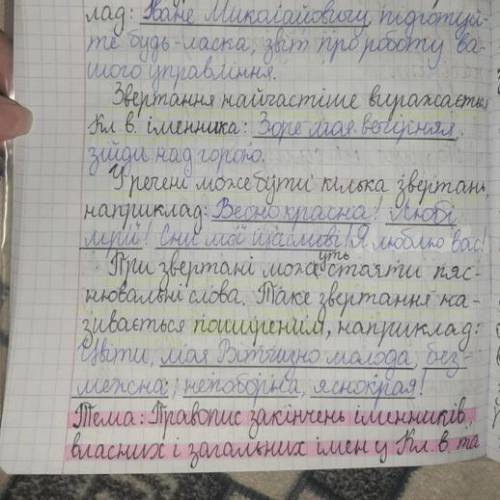 лад: Іване Миколайовичу, підготуй-
те будь-ласка, звіт про роботу ва-
шого управління.
Звертання найчастіше виражається
Кл. в. іменника: Зоре моя вечірняя,
зійди над горою.
У речені може бути кілька звертань
наприклад: Весно красна! Любі
мрії! Сни мої щасливі! Я люблю вас!
При звертані можуть стояти пяс-
нювальні слова. Таке звертання на-
зивається поширеним, наприклад:
Цвіти, моя Вітчизно молода, без-
межна, непоборна, яснокрая!
Тема: Правопис закінчень іменників,
власних і загальних імен у Кл. в. та